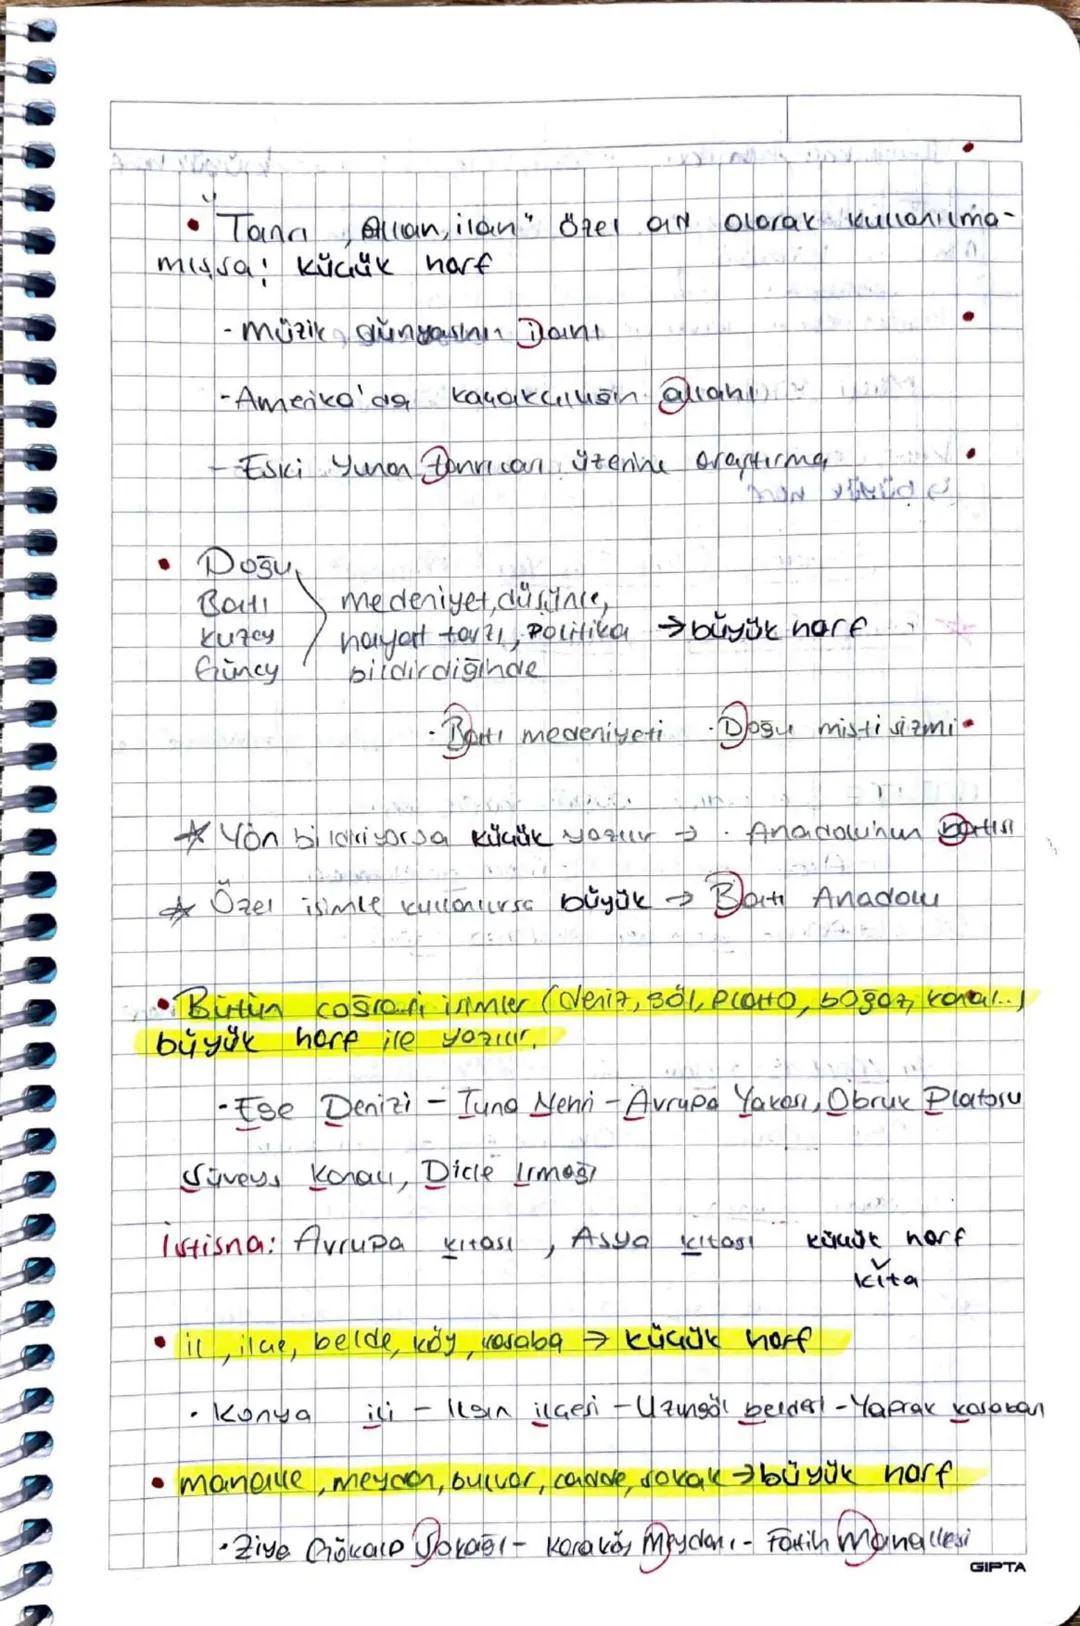 • "Tanrı, Allah, ilah" özel ad olarak kullanılma-
mışsa: küçük harf
- Müzik dünyasının ilahı
- Amerika'da kaçakçılığın allahı
- Eski Yunan tanrıları üzerine araştırma
• Doğu
Batı
Kuzey
Güney
medeniyet, düşünce,
hayat tarzı, politika → büyük harf
bildirdiğinde
· Batı medeniyeti · Doğu mistisizmi
☆ Yön bildiriyorsa küçük yazılır → · Anadolu'nun batısı
☆ Özel isimle kullanılırsa büyük → Batı Anadolu
• Bütün coğrafi isimler (deniz, göl, plato, boğaz, kanal..)
büyük harf ile yazılır.
· Ege Denizi – Tuna Nehri – Avrupa Yakası, Obruk Platosu
Süveyş Kanalı, Dicle Irmağı
İstisna: Avrupa kıtası, Asya kıtası küçük harf
kıta
• il, ilçe, belde, köy, kasaba → küçük harf
· Konya ili – Ilgın ilçesi – Uzungöl beldesi – Yaprak kasabası
• mahalle, meydan, bulvar, cadde, sokak → büyük harf
· Ziya Gökalp Sokağı – Karaköy Meydanı – Fatih Mahallesi
GIPTA